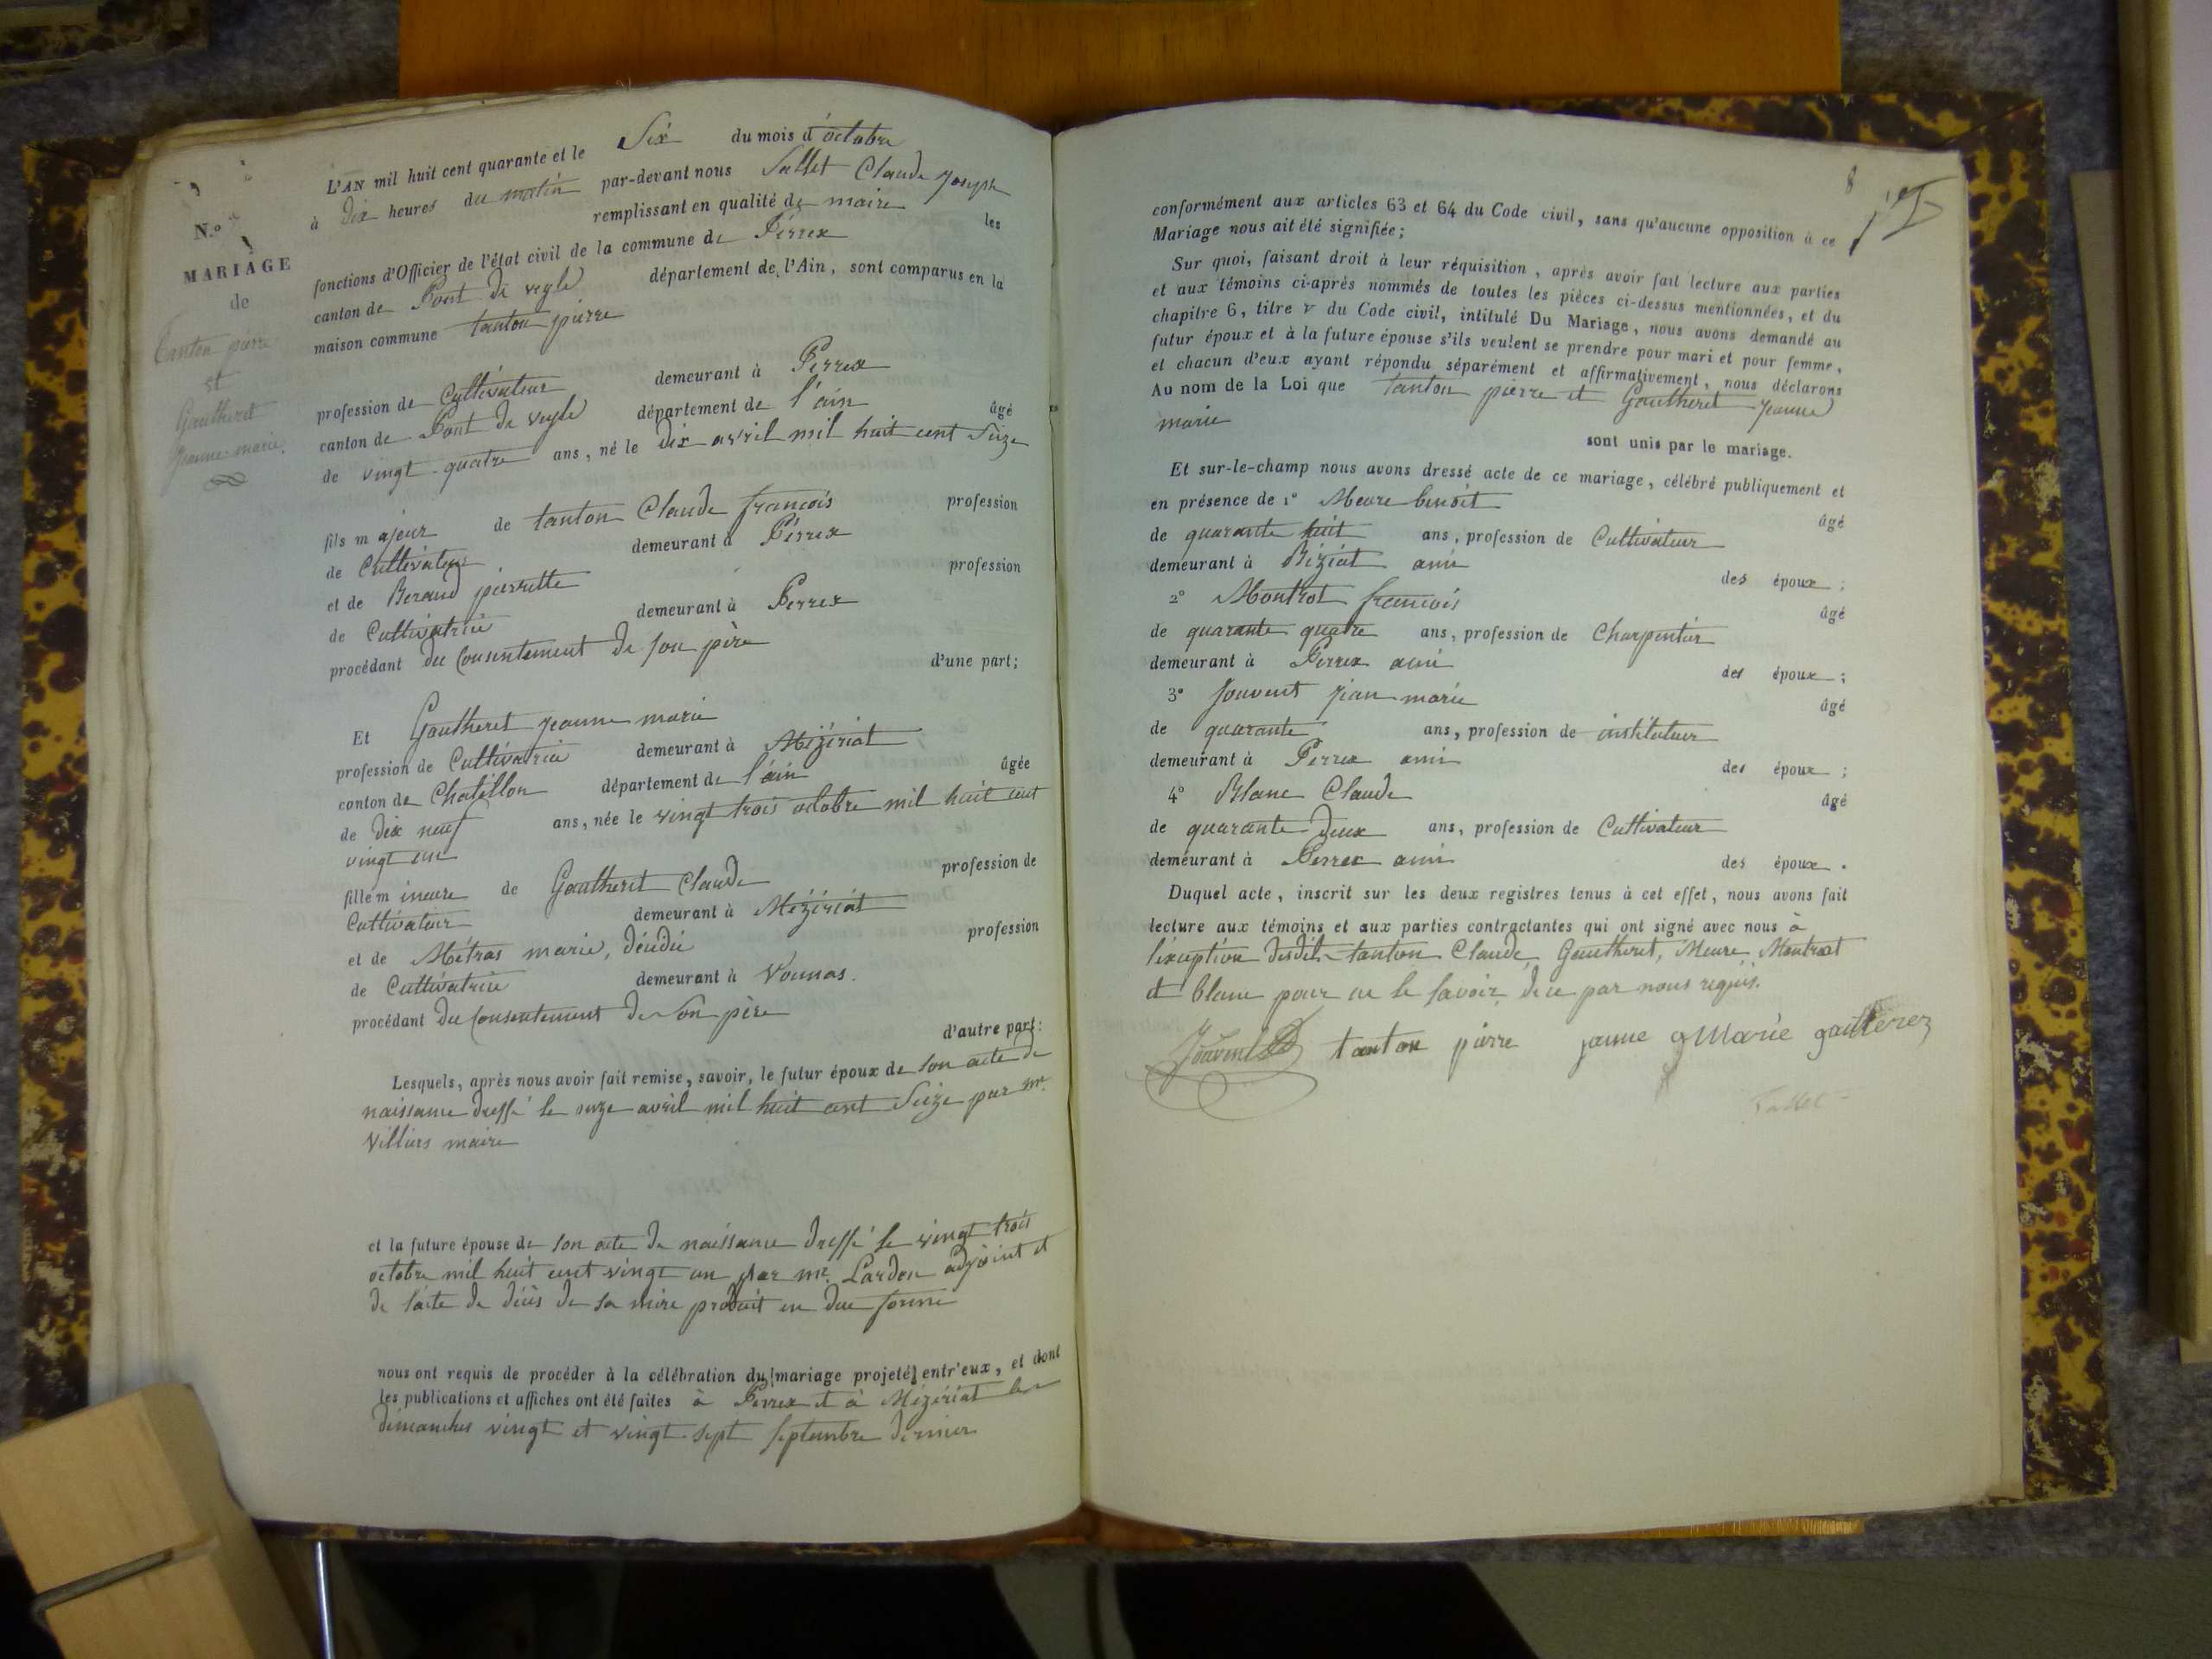 N.º
MARIAGE
de
Tanton pierre
et
Gautheret
Jeanne marie.
L'AN mil huit cent quarante et le Six du mois d'octobre
à Dix heures du matin par-devant nous Sallet Claude Joseph
remplissant en qualité de maire les
fonctions d'Officier de l'état civil de la commune de Perrex
canton de Pont de veyle département de l'Ain, sont comparus en la
maison commune tanton pierre
profession de Cultivateur demeurant à Perrex
canton de Pont de veyle département de l'ain âgé
de vingt-quatre ans, né le dix avril mil huit cent Seize
fils majeur de tanton Claude françois profession
de Cultivateur demeurant à Perrex
et de Beraud pierrette profession
de Cultivatrice demeurant à Perrex
procédant du Consentement de son père
d'une part;
Et Gautheret Jeanne marie
profession de Cultivatrice demeurant à Mézériat
conton de Chatillon département de l'ain âgée
de dix neuf ans, née le vingt trois octobre mil huit cent
vingt un
fille mineure de Gautheret Claude profession de
Cultivateur demeurant à Mézériat
et de Métras marie, décédée profession
de Cultivatrice demeurant à Vonnas.
procédant du Consentement de Son père
d'autre part:
Lesquels, après nous avoir fait remise, savoir, le futur époux de son acte de
naissance dressé le onze avril mil huit cent Seize par mr.
Villiers maire
et la future épouse de son acte de naissance dressé le vingt trois
octobre mil huit cent vingt un par mr. Lardon adjoint et
de l'acte de décès de sa mère produit en due forme
nous ont requis de procéder à la célébration du mariage projeté entr'eux, et dont
les publications et affiches ont été faites à Perrex et à Mézériat les
dimanches vingt et vingt-sept septembre dernier
8
conformément aux articles 63 et 64 du Code civil, sans qu'aucune opposition à ce
Mariage nous ait été signifiée;
Sur quoi, faisant droit à leur réquisition, après avoir fait lecture aux parties
et aux témoins ci-après nommés de toutes les pièces ci-dessus mentionnées, et du
chapitre 6, titre v du Code civil, intitulé Du Mariage, nous avons demandé au
futur époux et à la future épouse s'ils veulent se prendre pour mari et pour femme,
et chacun d'eux ayant répondu séparément et affirmativement, nous déclarons
Au nom de la Loi que tanton pierre et Gautheret Jeanne
marie
sont unis par le mariage.
Et sur-le-champ nous avons dressé acte de ce mariage, célébré publiquement et
en présence de 1° Meure benoit âgé
de quarante huit ans, profession de Cultivateur
demeurant à Biziat ami des époux;
2° Montrot françois âgé
de quarante quatre ans, profession de Charpentier
demeurant à Perrex ami des époux;
3° Jouvent jean marie âgé
de quarante ans, profession de instituteur
demeurant à Perrex ami des époux;
4° Blanc Claude âgé
de quarante Deux ans, profession de Cultivateur
demeurant à Perrex ami des époux.
Duquel acte, inscrit sur les deux registres tenus à cet effet, nous avons fait
lecture aux témoins et aux parties contractantes qui ont signé avec nous à
l'exception desdits tanton Claude, Gautheret, Meure, Montrot
et Blanc pour ne le savoir de ce par nous requis.
Jouvent tanton pierre janne Marie gautterez
Sallet